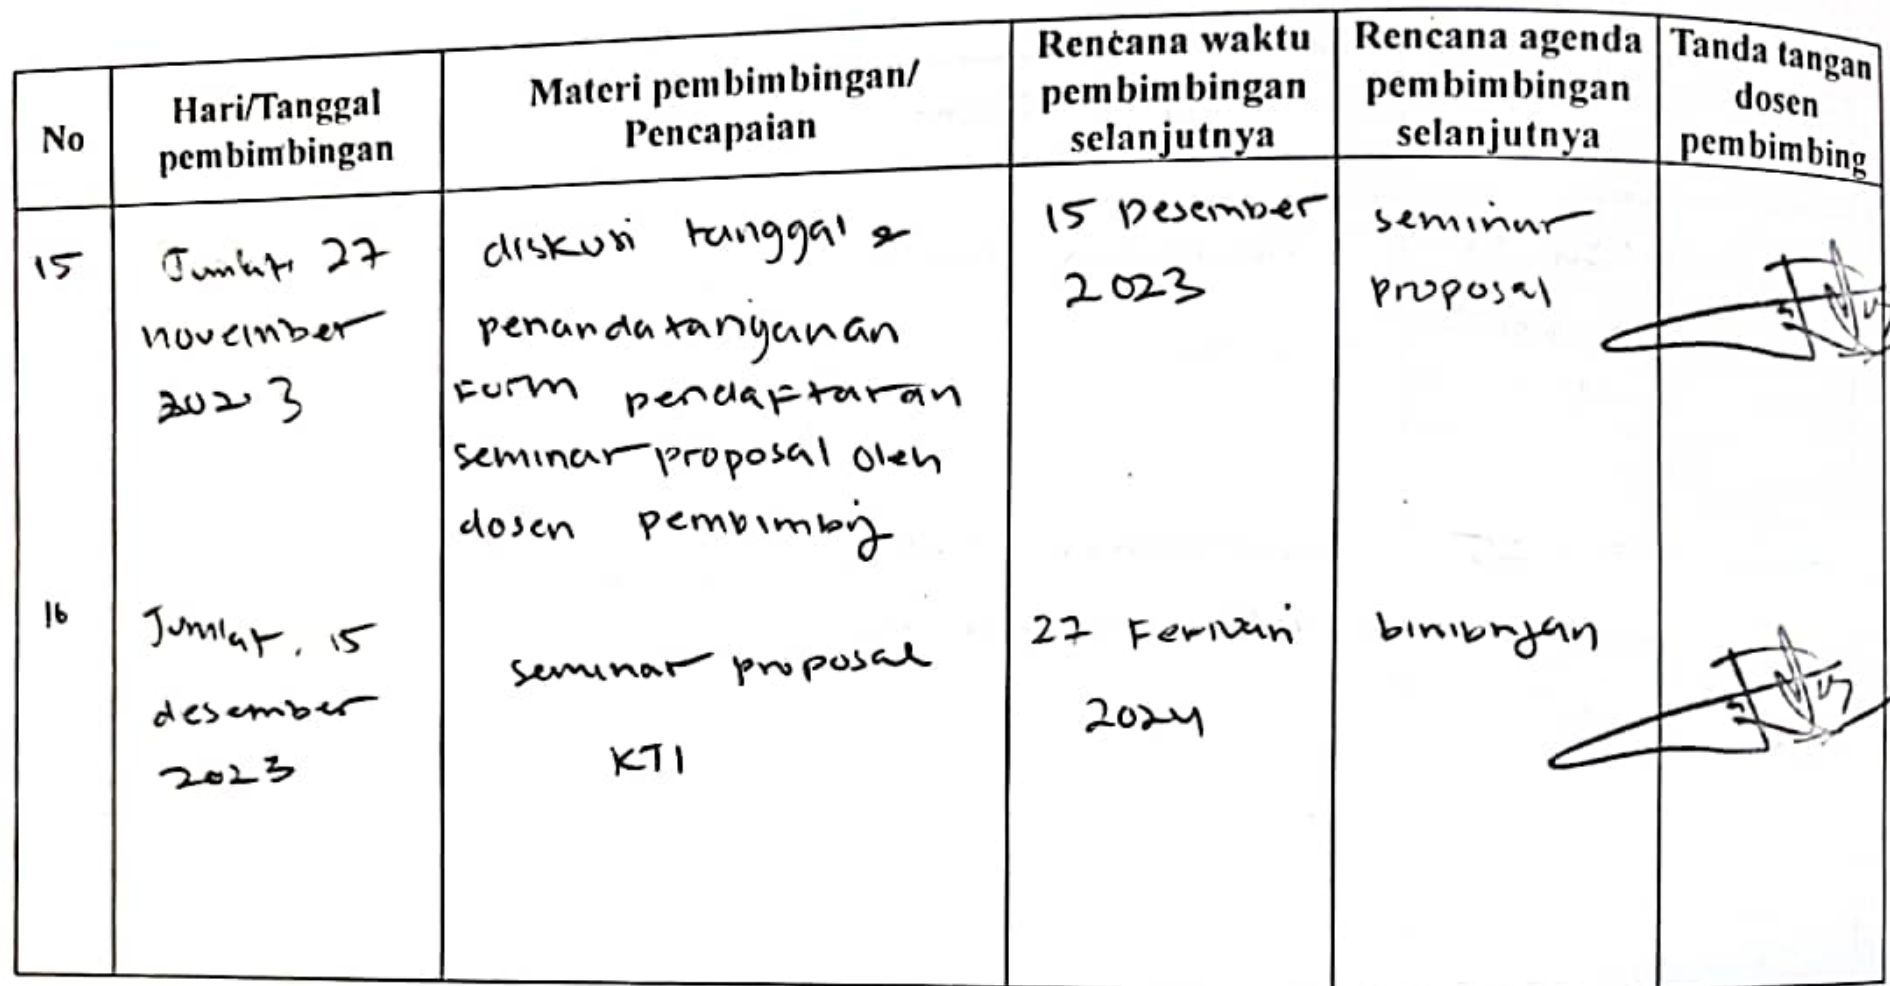 No
Hari/Tanggal
pembimbingan
Materi pembimbingan/
Pencapaian
Rencana waktu
pembimbingan
selanjutnya
Rencana agenda
pembimbingan
selanjutnya
Tanda tangan
dosen
pembimbing
15
27
november
2023
diskusi tanggal &
penandatanganan
Form pendaftaran
seminar proposal oleh
dosen
15 Desember
2023
seminar
proposal
16
15
desember
2023
seminar proposal
KTI
27
2024